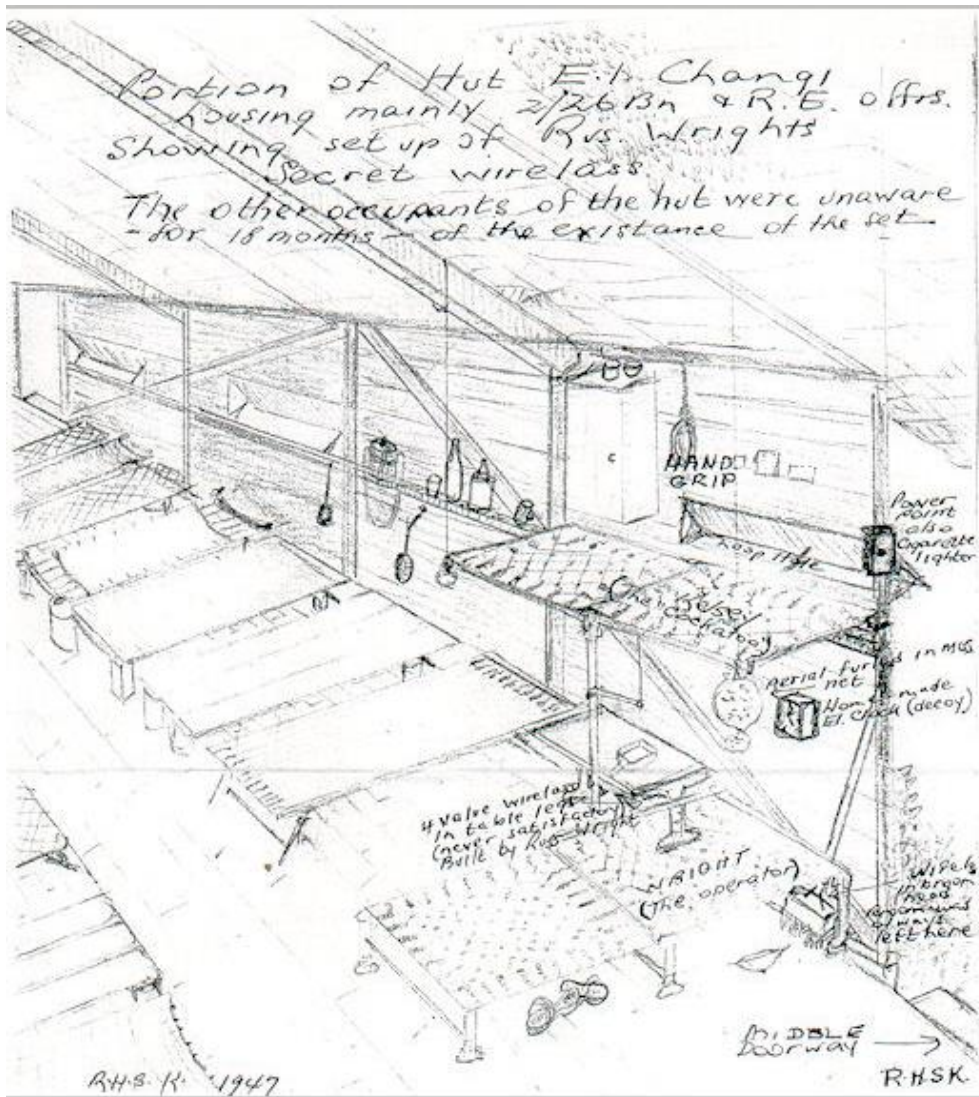 Portion of Hut E.1. Changi
housing mainly 2/26 Bn & R.E. offrs.
Showing set up of Rus. Wrights
Secret wireless.
The other occupants of the hut were unaware
- for 18 months - of the existance of the set
C
HAND
GRIP
Power
point
also
Cigarette
lighter
Loop Hole
Kelsey
(The Cockatoo)
Aerial furled in Mos
net
Home made
El. Clock (decoy)
4 Valve wireless
in table legs
(never satisfactory)
Built by Rus Wright
WRIGHT
(The operator)
Wireless
in broom
head
always
left here
MIDDLE
Doorway
R.H.S.K. 1947
R.H.S.K.